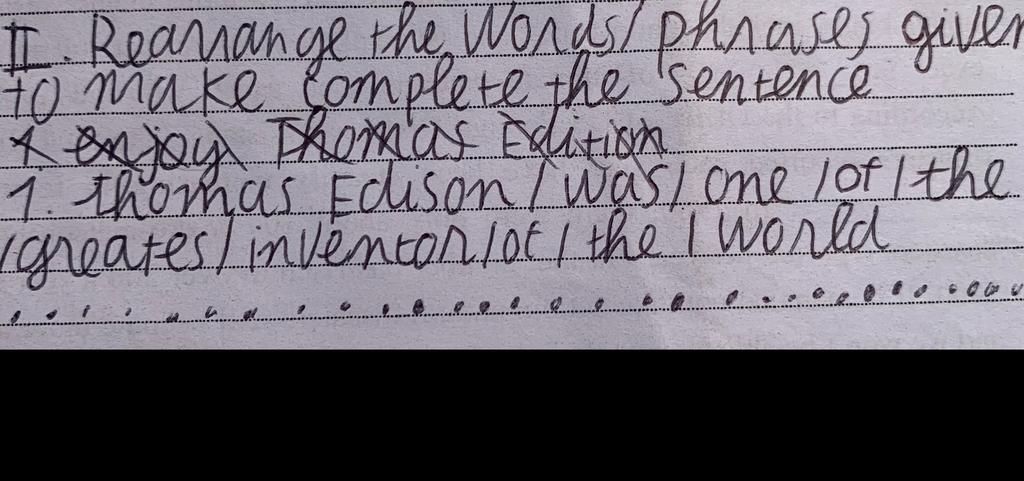 II. Rearrange the Words/ phrases given
to make complete the sentence
1. Thomas Edison / was / one / of / the
/ greates / inventor / of / the / World